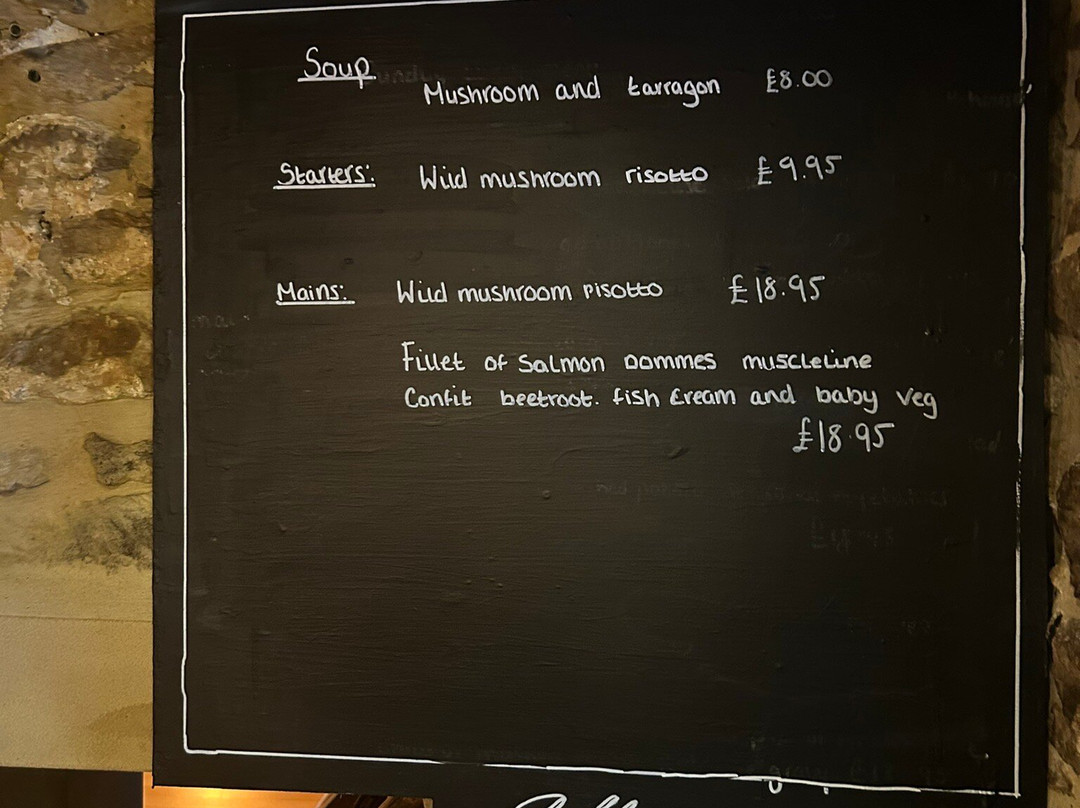 Soup
Mushroom and tarragon £8.00
Starters: Wild mushroom risotto £9.95
Mains: Wild mushroom risotto £18.95
Fillet of Salmon Pommes muscleline
Confit beetroot. fish Cream and baby veg
£18.95